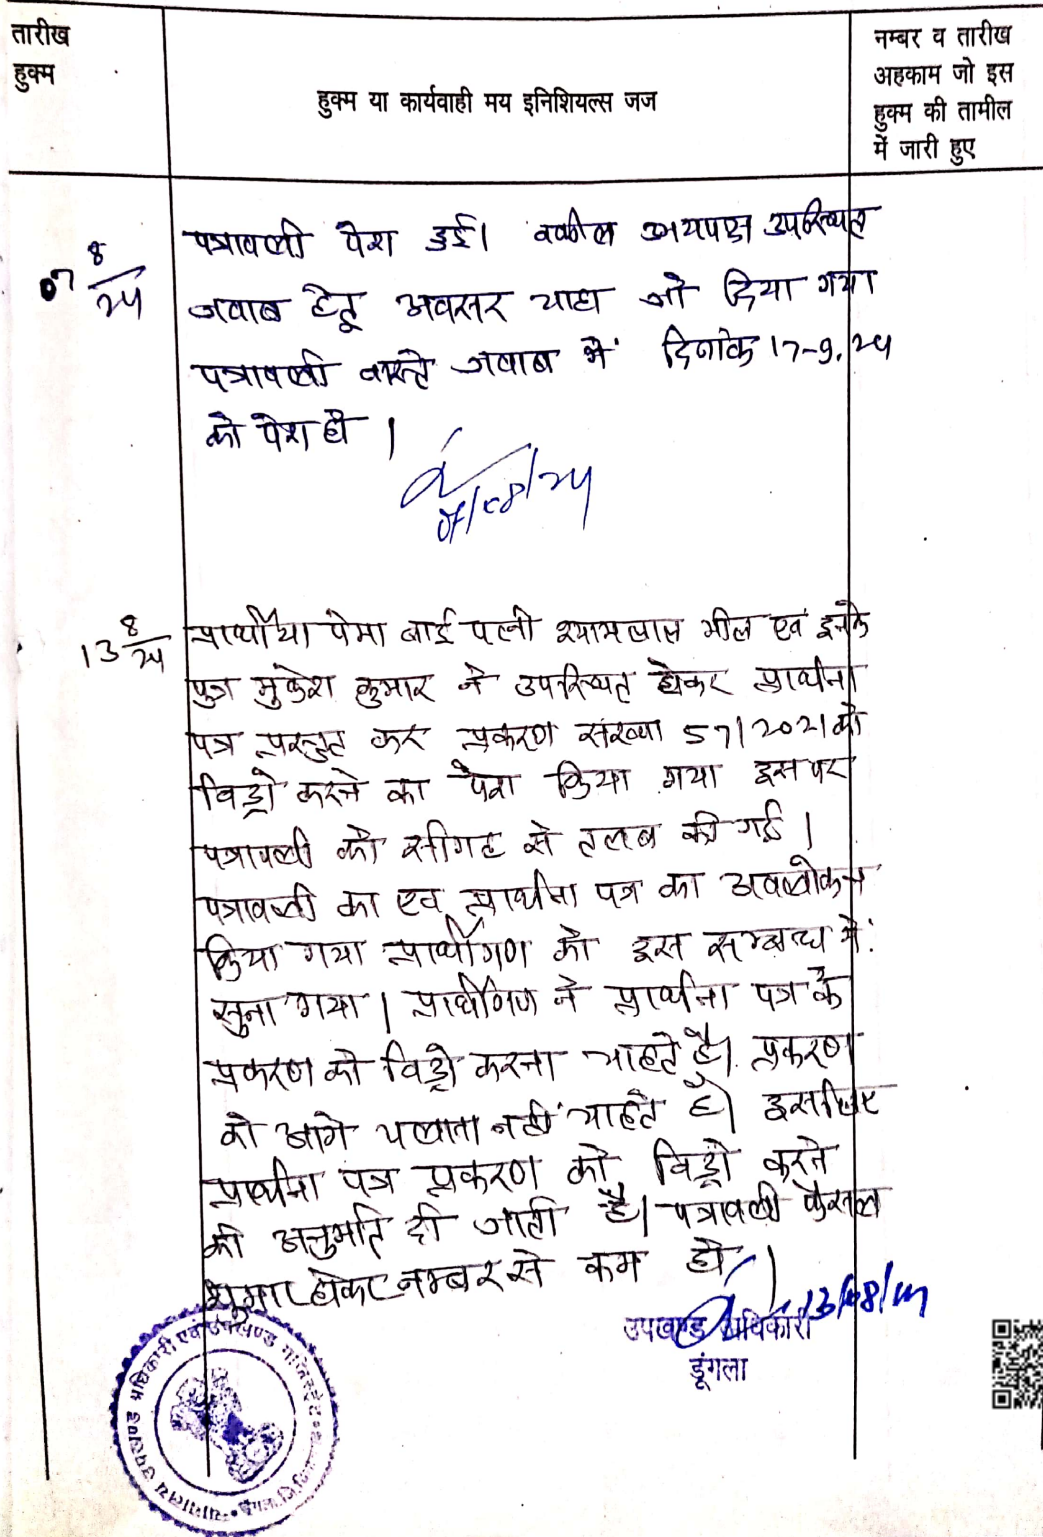 तारीख
हुक्म
हुक्म या कार्यवाही मय इनिशियल्स जज
नम्बर व तारीख
अहकाम जो इस
हुक्म की तामील
में जारी हुए
07 8/24
पत्रावली पेश हुई। वकील उभयपक्ष उपस्थित
जवाब हेतू अवसर चाहा जो दिया गया
पत्रावली वास्ते जवाब में दिनांक 17-9.24
को पेश हो।
07/08/24
13 8/24
प्रार्थीया पेमा बाई पत्नी श्यामलाल भील एवं इनके
पुत्र मुकेश कुमार ने उपस्थित होकर प्रार्थना
पत्र प्रस्तुत कर प्रकरण संख्या 57/2021 को
विड्रो करने का पेश किया गया इस पर
पत्रावली को सीगह से तलब की गई।
पत्रावली का एवं प्रार्थना पत्र का अवलोकन
किया गया प्रार्थीगण को इस सम्बन्ध में
सुना गया। प्रार्थीगण ने प्रार्थना पत्र के
प्रकरण को विड्रो करना चाहते है। प्रकरण
को आगे चलाना नहीं चाहते है। इसलिए
प्रार्थना पत्र प्रकरण को विड्रो करने
की अनुमति दी जाती है। पत्रावली फैसल
शुमार होकर नम्बर से कम हो।
13/08/24
उपखण्ड अधिकारी
डूंगला
न्यायालय उपखण्ड अधिकारी एवं उपखण्ड